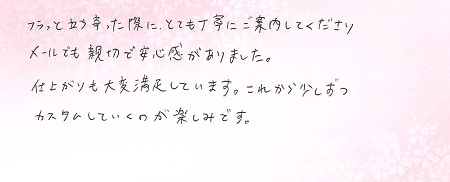 フラッと立ち寄った際に、とても丁寧にご案内してくださり
メールでも親切で安心感がありました。
仕上がりも大変満足しています。これから少しずつ
カスタムしていくのが楽しみです。